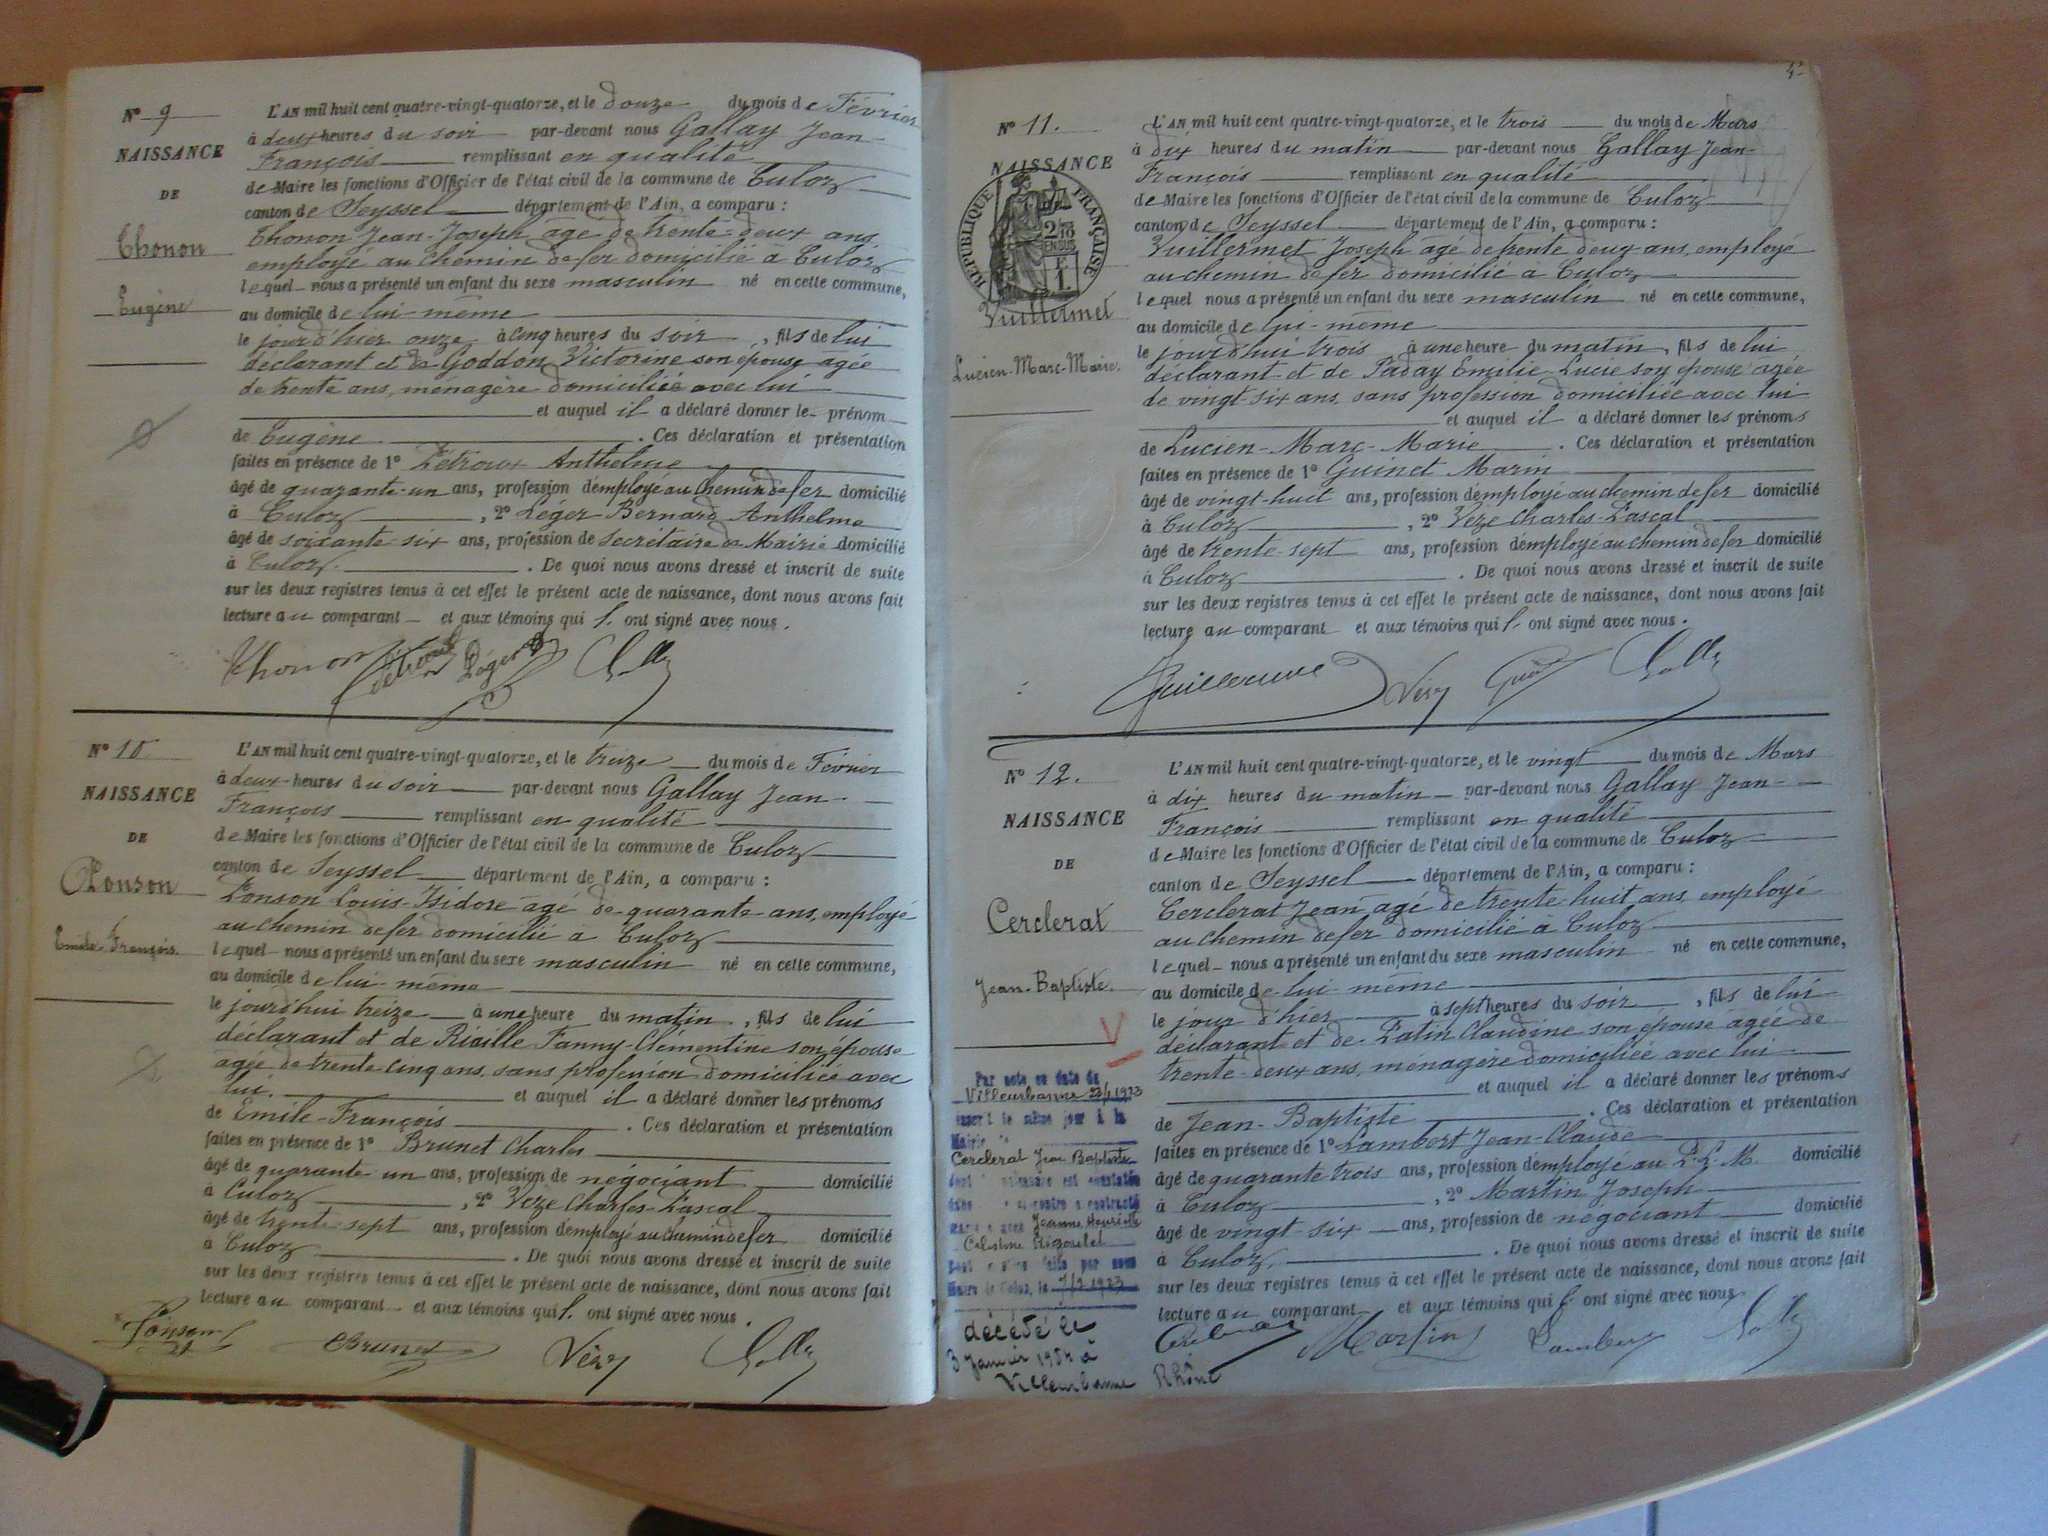 N° 9
NAISSANCE
DE
Thonon
Eugène
L'AN mil huit cent quatre-vingt-quatorze, et le douze du mois de Février
à deux heures du soir par-devant nous Gallay Jean-
François remplissant en qualité
de Maire les fonctions d'Officier de l'état civil de la commune de Culoz
canton de Seyssel département de l'Ain, a comparu :
Thonon Jean-Joseph âgé de trente-deux ans
employé au chemin de fer domicilié à Culoz
lequel nous a présenté un enfant du sexe masculin né en cette commune,
au domicile de lui-même
le jour d'hier onze à cinq heures du soir, fils de lui
déclarant et de Goddon Victorine son épouse agée
de trente ans, ménagère domiciliée avec lui
et auquel il a déclaré donner le prénom
de Eugène. Ces déclaration et présentation
faites en présence de 1° Anthelme
âgé de quarante-un ans, profession d'employé au chemin de fer domicilié
à Culoz, 2° Léger Bernard Anthelme
âgé de soixante-six ans, profession de secrétaire de Mairie domicilié
à Culoz. De quoi nous avons dressé et inscrit de suite
sur les deux registres tenus à cet effet le présent acte de naissance, dont nous avons fait
lecture au comparant et aux témoins qui l. ont signé avec nous.
Thonon Léger
N° 10
NAISSANCE
DE
Ponson
Emile-François.
L'AN mil huit cent quatre-vingt-quatorze, et le treize du mois de Février
à deux heures du soir par-devant nous Gallay Jean-
François remplissant en qualité
de Maire les fonctions d'Officier de l'état civil de la commune de Culoz
canton de Seyssel département de l'Ain, a comparu :
Ponson Louis-Isidore âgé de quarante ans, employé
au chemin de fer domicilié à Culoz
lequel nous a présenté un enfant du sexe masculin né en cette commune,
au domicile de lui-même
le jourd'hui treize à une heure du matin, fils de lui
déclarant et de Riaille Fanny-Clementine son épouse
agée de trente cinq ans, sans profession domiciliée avec
lui. et auquel il a déclaré donner les prénoms
de Emile-François. Ces déclaration et présentation
faites en présence de 1° Brunet Charles
âgé de quarante un ans, profession de négociant domicilié
à Culoz, 2° Veze Charles-Pascal
âgé de trente-sept ans, profession d'employé au chemin de fer domicilié
à Culoz. De quoi nous avons dressé et inscrit de suite
sur les deux registres tenus à cet effet le présent acte de naissance, dont nous avons fait
lecture au comparant et aux témoins qui l. ont signé avec nous.
Ponson Brunet
N° 11.
NAISSANCE
RÉPUBLIQUE FRANÇAISE
Vuillermet
Lucien-Marc-Marie.
L'AN mil huit cent quatre-vingt-quatorze, et le trois du mois de Mars
à dix heures du matin par-devant nous Gallay Jean-
François remplissant en qualité
de Maire les fonctions d'Officier de l'état civil de la commune de Culoz
canton de Seyssel département de l'Ain, a comparu :
Vuillermet Joseph âgé de trente deux ans, employé
au chemin de fer domicilié à Culoz
lequel nous a présenté un enfant du sexe masculin né en cette commune,
au domicile de lui-même
le jourd'hui trois à une heure du matin, fils de lui
déclarant et de Paday Emilie-Lucie son épouse agée
de vingt six ans, sans profession domiciliée avec lui
et auquel il a déclaré donner les prénoms
de Lucien-Marc-Marie. Ces déclaration et présentation
faites en présence de 1° Guinet Marin
âgé de vingt-huit ans, profession d'employé au chemin de fer domicilié
à Culoz, 2° Veze Charles-Pascal
âgé de trente-sept ans, profession d'employé au chemin de fer domicilié
à Culoz. De quoi nous avons dressé et inscrit de suite
sur les deux registres tenus à cet effet le présent acte de naissance, dont nous avons fait
lecture au comparant et aux témoins qui l. ont signé avec nous.
N° 12.
NAISSANCE
DE
Cerclerat
Jean-Baptiste.
L'AN mil huit cent quatre-vingt-quatorze, et le vingt du mois de Mars
à dix heures du matin par-devant nous Gallay Jean-
François remplissant en qualité
de Maire les fonctions d'Officier de l'état civil de la commune de Culoz
canton de Seyssel département de l'Ain, a comparu :
Cerclerat Jean âgé de trente huit ans, employé
au chemin de fer domicilié à Culoz
lequel nous a présenté un enfant du sexe masculin né en cette commune,
au domicile de lui-même
le jour d'hier à sept heures du soir, fils de lui
déclarant et de Patin Claudine son épouse agée de
trente-deux ans, ménagère domiciliée avec lui
et auquel il a déclaré donner les prénoms
de Jean-Baptiste. Ces déclaration et présentation
faites en présence de 1° Lambert Jean-Claude
âgé de quarante trois ans, profession d'employé au P.L.M. domicilié
à Culoz, 2° Martin Joseph
âgé de vingt-six ans, profession de négociant domicilié
à Culoz. De quoi nous avons dressé et inscrit de suite
sur les deux registres tenus à cet effet le présent acte de naissance, dont nous avons fait
lecture au comparant et aux témoins qui l. ont signé avec nous
Martin Lambert
Par acte en date du
Villeurbanne 1923
inscrit le même jour à la
Mairie
Cerclerat Jean Baptiste
contracté
avec Jeanne
Celestine
1923
décédé le
3 Janvier à
Villeurbanne Rhône